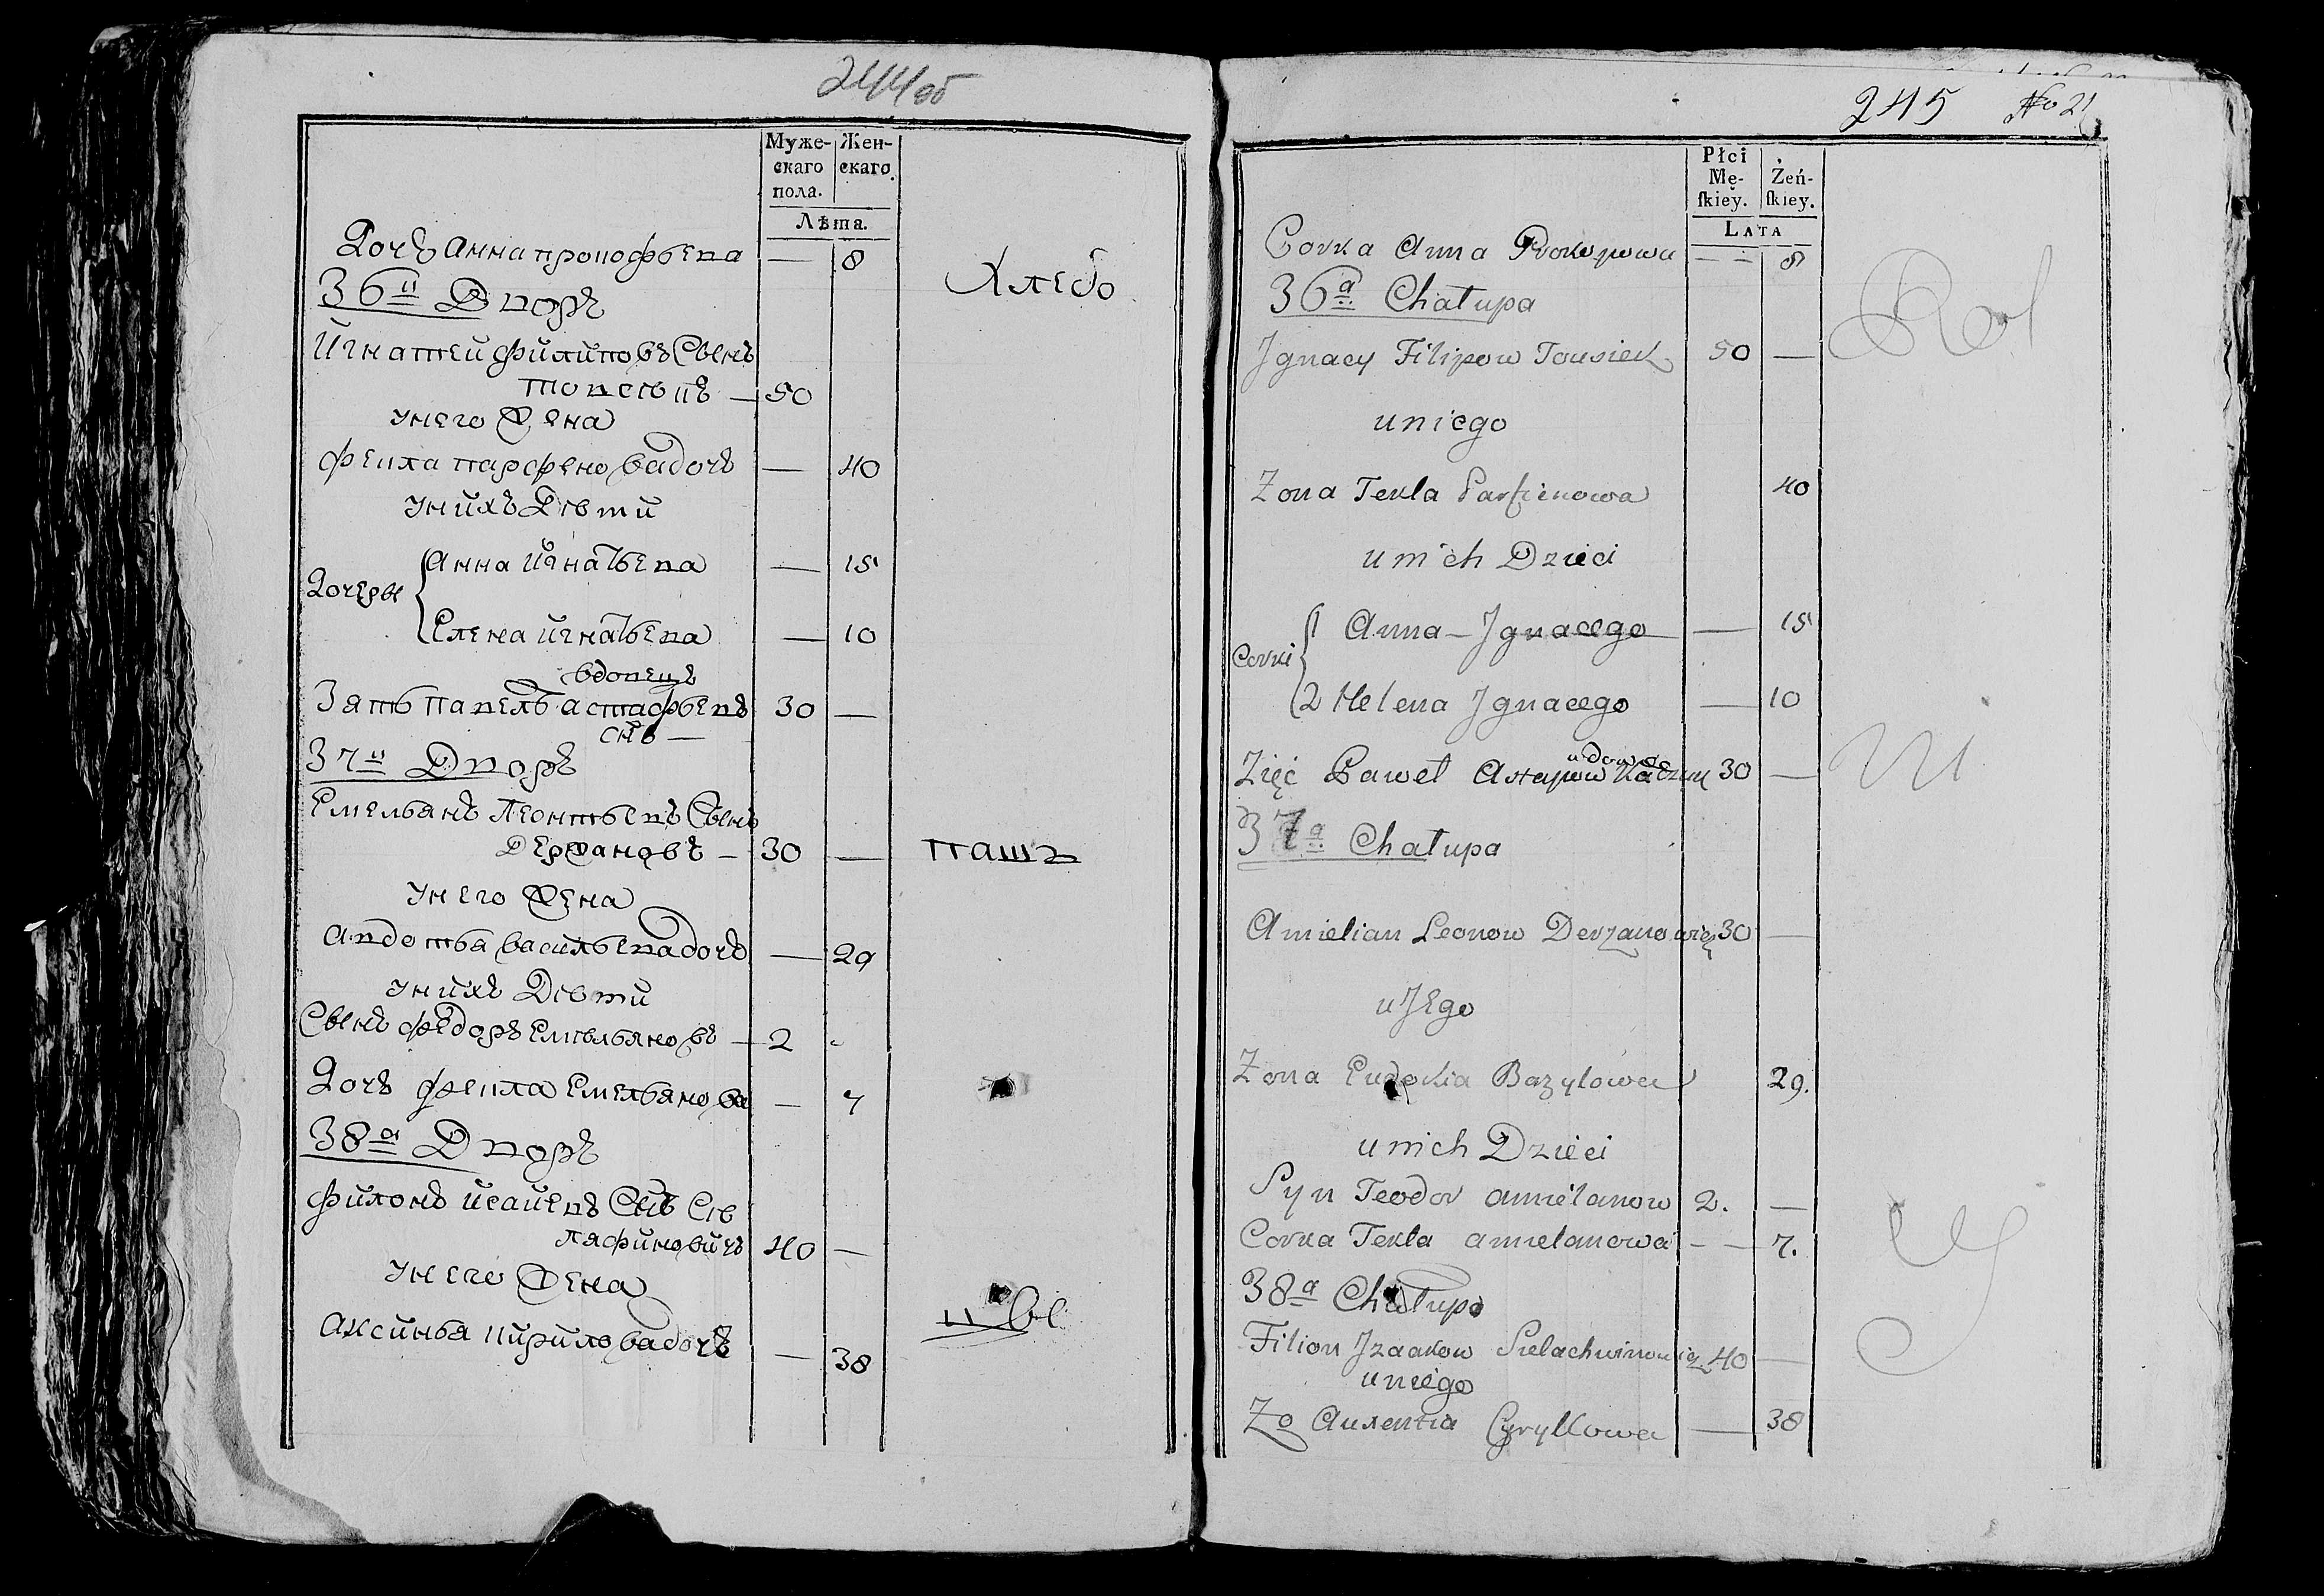 244 об
Муже-
скаго
пола.
Жен-
скаго.
Лѣта.
Дочь Анна прокофьева — 8
Хлебо
36й Дворъ
Игнатей Филиповъ Сынъ
товсюкъ — 50
унего Жена
Фекла парфенова дочь — 40
унихъ Дѣти
Дочеры
Анна Игнатьева — 15
Елена Игнатьева — 10
вдовецъ
Зять павелъ астафьевъ 30 —
снъ —
37й Дворъ
Емельянъ Леонтьевъ Сынъ
Держановъ — 30 —
паш
унего Жена
Авдотья васильева дочь — 29
унихъ Дѣти
Сынъ Федоръ Емѣльяновъ — 2
Дочь Фекла Емельянова — 7
38а Дворъ
Филонъ Исаивъ Снъ Сѣ
ляфиновичъ 40 —
унего Жена
Аксинья кирилова дочь — 38
квы
245 No 21
Płci
Mę-
ſkiey.
Żeń-
ſkiey.
LATA
Corka Anna Prokopowa — — 8
36a Chałupa
Rol
Jgnacy Filipow Towsiek 50 —
uniego
Zona Tekla Parfienowa 40
unich Dzieci
Corki
1 Anna — Jgnacego — 15
2 Helena Jgnacego — 10
wdowec
Zięć Paweł Astapow 30 —
ni
37a Chałupa
Amielian Leonow Derzanowicz 30 —
u Jego
Zona Eudokia Bazylowa 29.
unich Dzieci
Syn Teodor amielanow 2. —
Corka Tekla amielanowa — — 7.
38a Chałupa
Filion Jzaakow Sielachwinowicz 40 —
uniego
Zo Auxentia Cyryllowa — 38